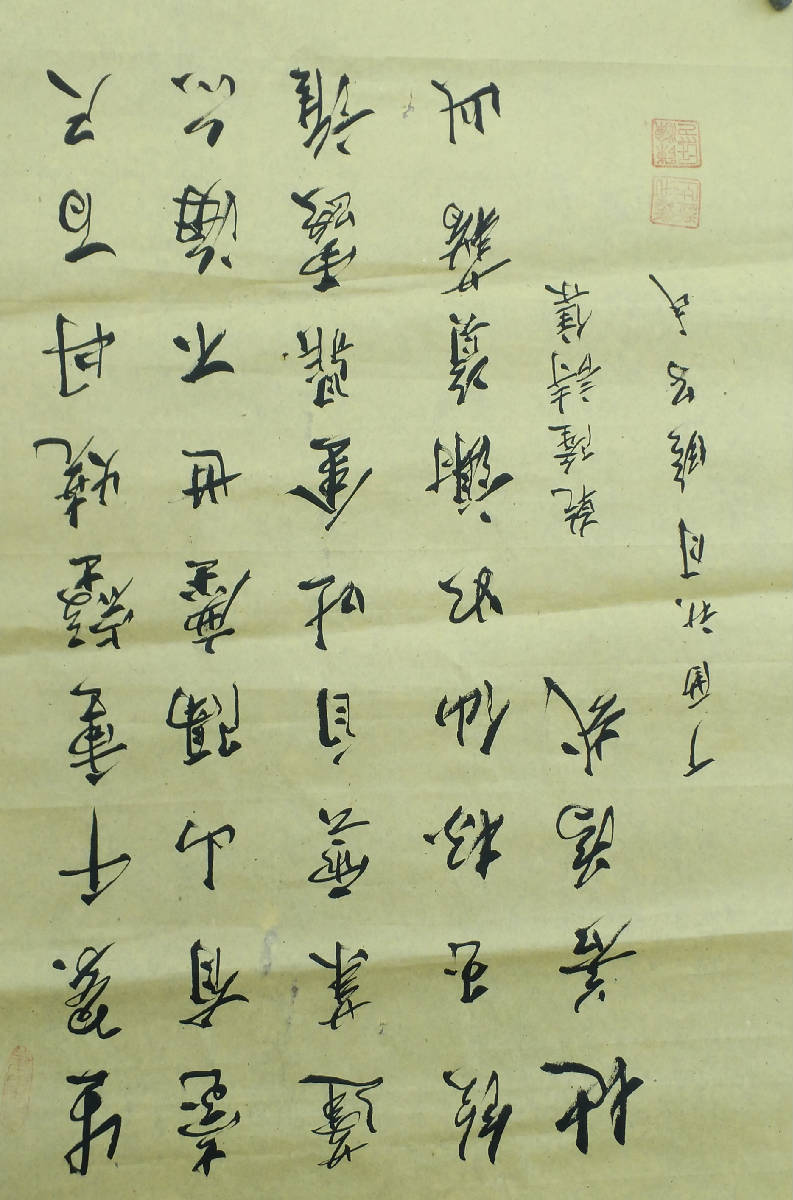 生翠千重壑燒丹百尺
臺有山隔塵世不海亦
蓬萊雲自吐金鼎露誰
飲玉杯仙如謝資藉此
地若為哉
乾隆詩集
丁酉秋月民